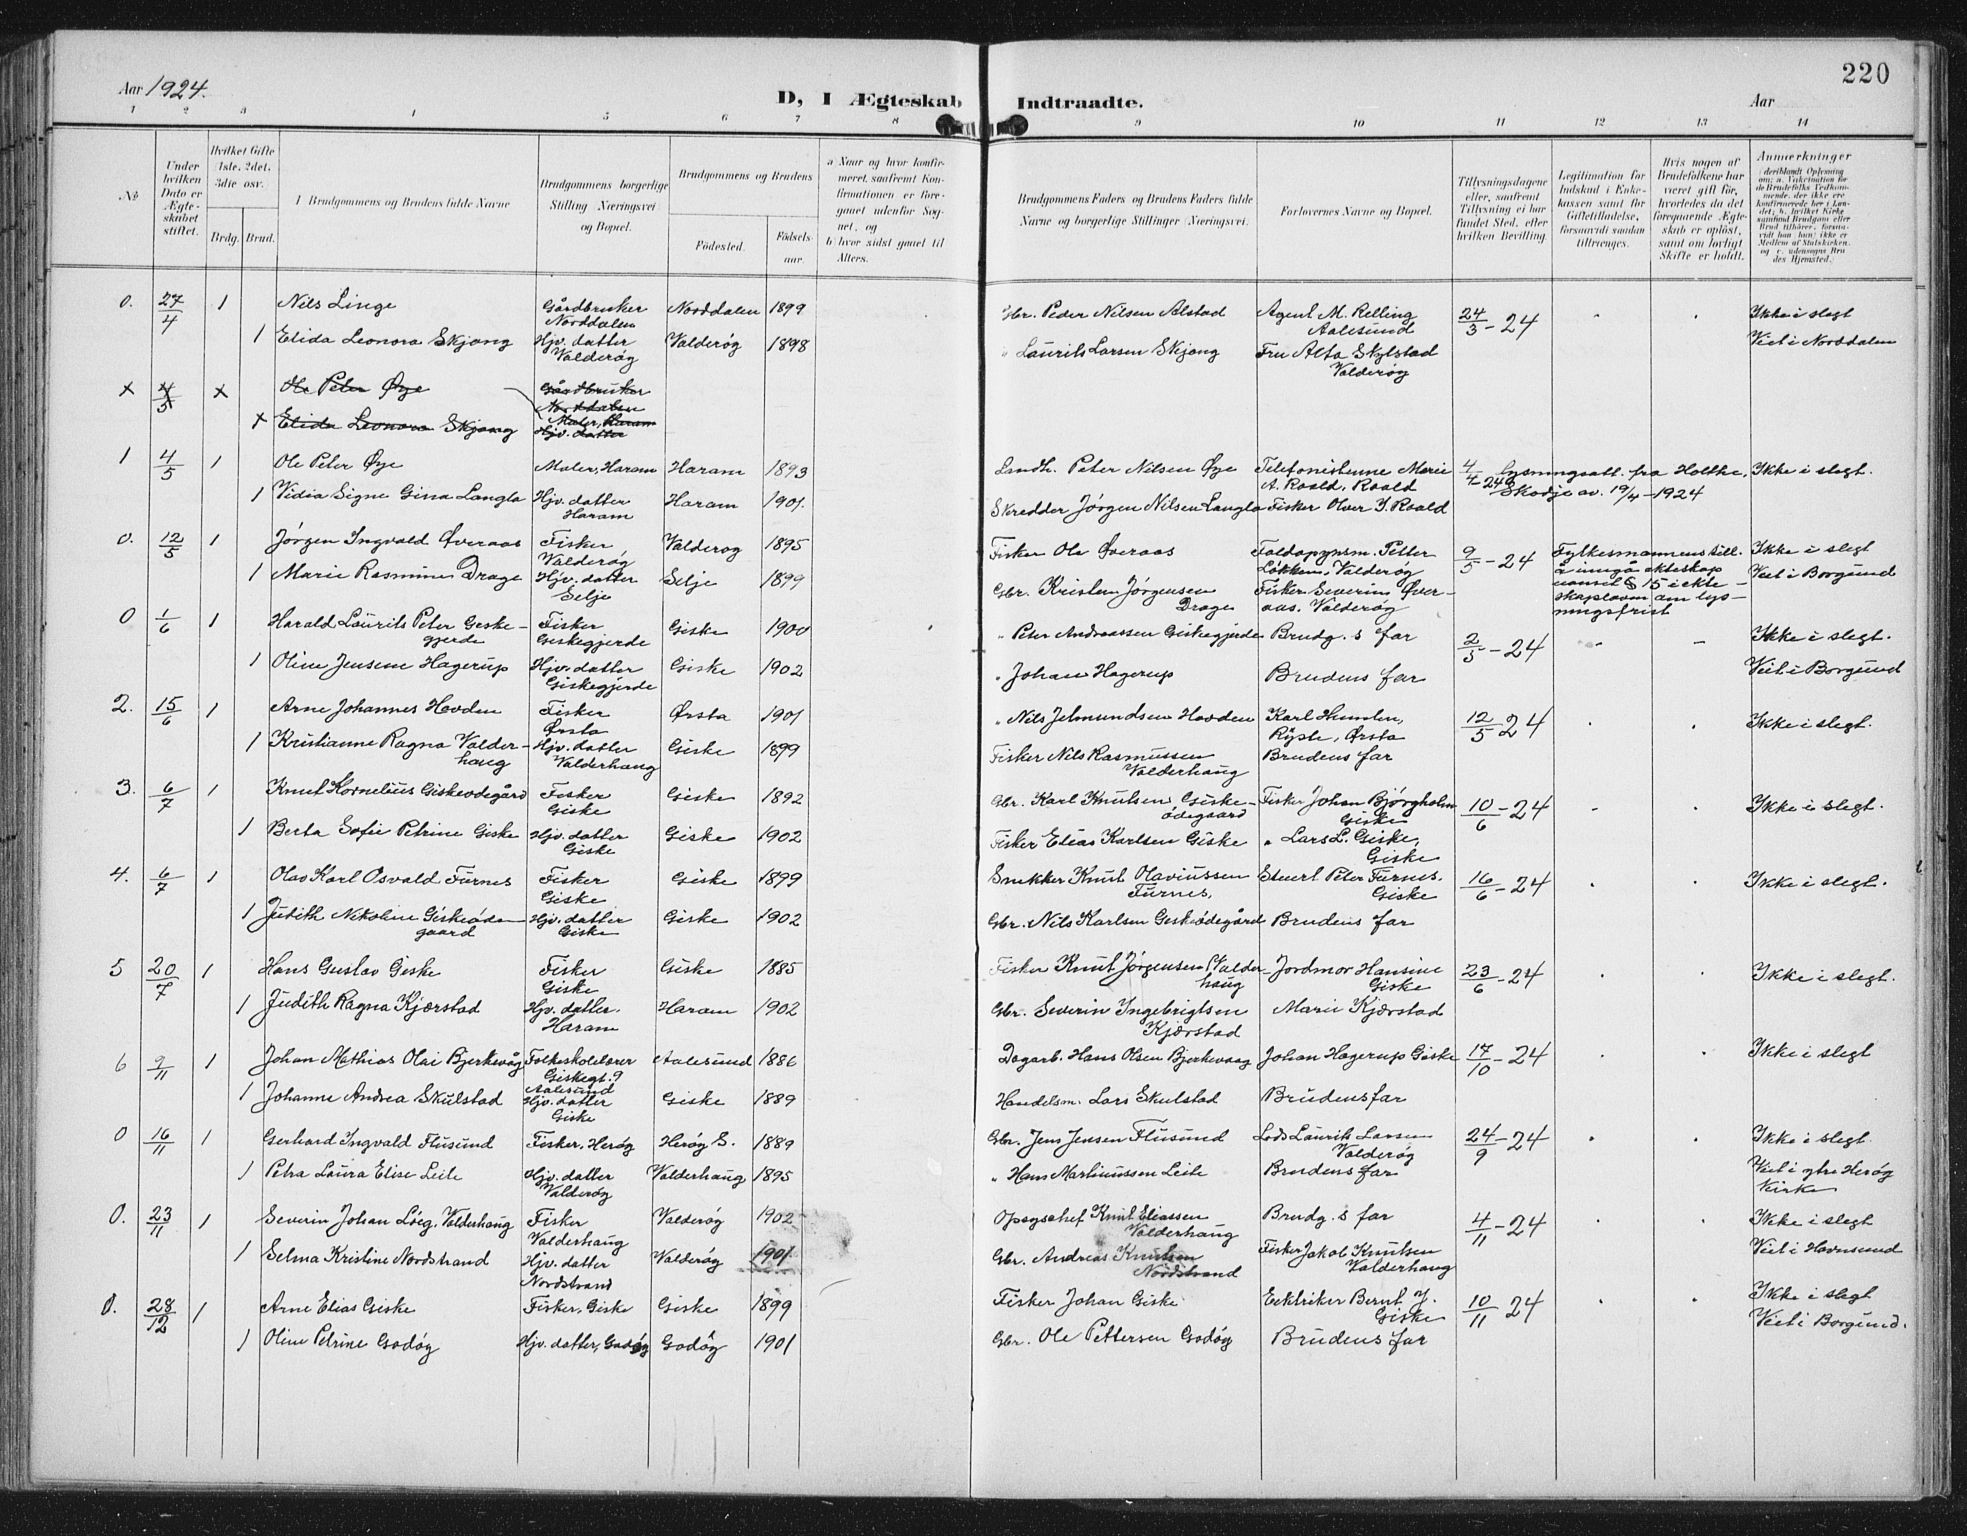 220
Aar 1924.
D, I Ægteskab Indtraadte.
Aar
1 2 3 4 5 6 7 8 9 10 11 12 13 14
No
Under hvilken Dato er Ægteskabet stiftet.
Hvilket Gifte 1ste, 2det, 3die osv.
Brdg. Brud.
1 Brudgommens og Brudens fulde Navne
Brudgommens borgerlige Stilling Næringsvei og Bopæl.
Brudgommens og Brudens
Födested.
Födselsaar.
a Naar og hvor konfirmeret, saafremt Konfirmationen er foregaaet udenfor Sognet, og
b hvor sidst gaaet til Alters.
Brudgommens Faders og Brudens Faders fulde Navne og borgerlige Stillinger (Næringsvei.
Forlovernes Navne og Bopæl.
Tillysningsdagene eller, saafremt Tillysning ei har fundet Sted, efter hvilken Bevilling.
Legitimation for Indskud i Enkekassen samt for Giftetilladelse, forsaavidt saadan tiltrænges.
Hvis nogen af Brudefolkene har været gift för, hvorledes da det foregaaende Ægteskab er oplöst, samt om lovligt Skifte er holdt.
Anmærkninger
0. 27/4 1 Nils Linge Gårdbruker Norddalen Norddalen 1899 Gbr. Peder Nilsen Alstad Agent M. Relling Aalesund 24/3 - 24 Ikke i slegt
1 Elida Leonora Skjong Hjv. datter Valderøy Valderøy 1898 " Laurits Larsen Skjong Fru Alta Skylstad Valderøy Viet i Norddalen
x 4/5 x Ole Peter Øye Gårdbruker Norddalen Maler, Haram
x Elida Leonora Skjong Hjv. datter
1 4/5 1 Ole Peter Øye Maler, Haram Haram 1893 Landh. Peter Nilsen Øye Telefonistinne Marie A. Roald, Roald 4/4 - 24 Lysningsatt. fra Holtke, Skodje av. 19/4 - 1924 Ikke i slegt.
1 Vidia Signe Gina Langlo Hjv. datter Haram Haram 1901. Skredder Jørgen Nilsen Langlo Fisker Olver J. Roald
0. 12/5 1 Jørgen Ingvald Øveraas Fisker Valderøy Valderøy 1895 Fisker Ole Øveraas Petter Løkken, Valderøy 9/5 - 24 Fylkesmannens till. å inngå ekteskap uanset § 15 i ekteskapsloven om lysningsfrist Ikke i slegt
1 Marie Rasmine Drage Hjv. datter Selje Selje 1899 Gbr. Kristen Jørgensen Drage Fisker Severin Øveraas. Valderøy Viet i Borgund
0 1/6 1 Harald Laurits Peter Geskegjerde Fisker Giskegjerde Giske 1900 " Peter Andreassen Giskegjerde Brudg.s far 2/5 - 24 Ikke i slegt.
1 Oline Jensine Hagerup Hjv. datter Giskegjerde Giske 1902 " Johan Hagerup Brudens far Viet i Borgund
2. 15/6 1 Arne Johannes Hovden Fisker Ørsta Ørsta 1901 " Nils Jetmundsen Hovden Karl Humlen, Ryste, Ørsta 12/5 - 24 Ikke i slegt.
1 Kristianne Ragna Valderhaug Hjv. datter Valderhaug Giske 1899 Fisker Nils Rasmussen Valderhaug Brudens far
3. 6/7 1 Knut Kornelius Giskeødegård Fisker Giske Giske 1892 Gbr. Karl Knutsen Giskeødegaard Fisker Johan Bjørgholm Giske 10/6 - 24 Ikke i slegt.
1 Berta Sofie Petrine Giske Hjv. datter Giske Giske 1902 Fisker Elias Karlsen Giske " Lars L. Giske, Giske
4. 6/7 1 Olav Karl Osvald Furnes Fisker Giske Giske 1899 Snekker Knut Olaviussen Furnes. Stuert Peter Furnes. Giske 16/6 - 24 Ikke i slegt.
1 Judith Nikoline Giskeødegaard Hjv. datter Giske Giske 1902 Gbr. Nils Karlsen Geskeødegård Brudens far
5 20/7 1 Hans Gustav Giske Fisker Giske Giske 1885 Fisker Knut Jørgensen Valderhaug Jordmor Hansine Giske 23/6 - 24 Ikke i slegt.
1 Judith Ragna Kjærstad Hjv. datter. Haram Haram 1902 Gbr. Severin Ingebrigtsen Kjærstad Marie Kjærstad
6 9/11 1 Johan Mathias Olai Bjerkevåg Folkeskolelærer Aalesund Aalesund 1886 Dagarb. Hans Olsen Bjerkevaag Johan Hagerup Giske 17/10 - 24 Ikke i slegt
1 Johanne Andrea Skulstad Hjv. datter Giske Giske 1889 Handelsm. Lars Skulstad Brudens far
0 16/11 1 Gerhard Ingvald Flusund Fisker, Herøy Herøy S. 1889 Gbr. Jens Jensen Flusund Lods Laurits Larsen Valderøy 24/9 - 24 Ikke i slegt.
1 Petra Laura Elise Leite Hjv. datter Valderøy Valderhaug 1895 " Hans Martinussen Leite Brudens far Viet i ytre Herøy kirke
0. 23/11 1 Severin Johan Valderhaug Fisker Valderhaug Valderøy 1902 Opsyschef Knut Eliassen Valderhaug Brudg.s far 4/11 - 24 Ikke i slegt
1 Selma Kristine Nordstrand Hjv. datter Nordstrand Valderøy 1901 Gbr. Andreas Knutsen Nordstrand Fisker Jakob Knutsen Valderhaug Viet i Havnsund
0. 28/12 1 Arne Elias Giske Fisker, Giske Giske 1899 Fisker Johan Giske Eektriker Bernt J. Giske 10/11 - 24 Ikke i slegt
1 Oline Petrine Godøy Hjv. datter, Godøy Godøy 1901 Gbr. Ole Pettersen Godøy Brudens far Viet i Borgund.